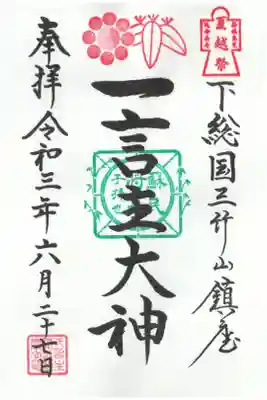 夏越祭
下総国三竹山鎮座
一言主大神
奉拝令和三年六月二十七日